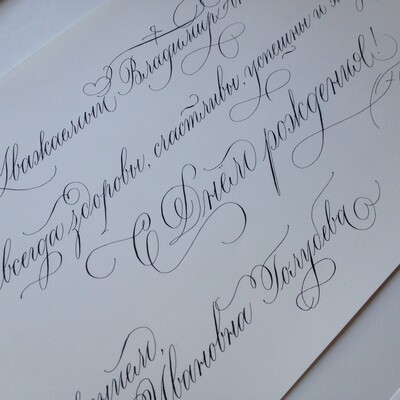 Уважаемый Владимир
всегда здоровы, счастливы, успешны и
С Днём рождения!
Ивановна Голубева